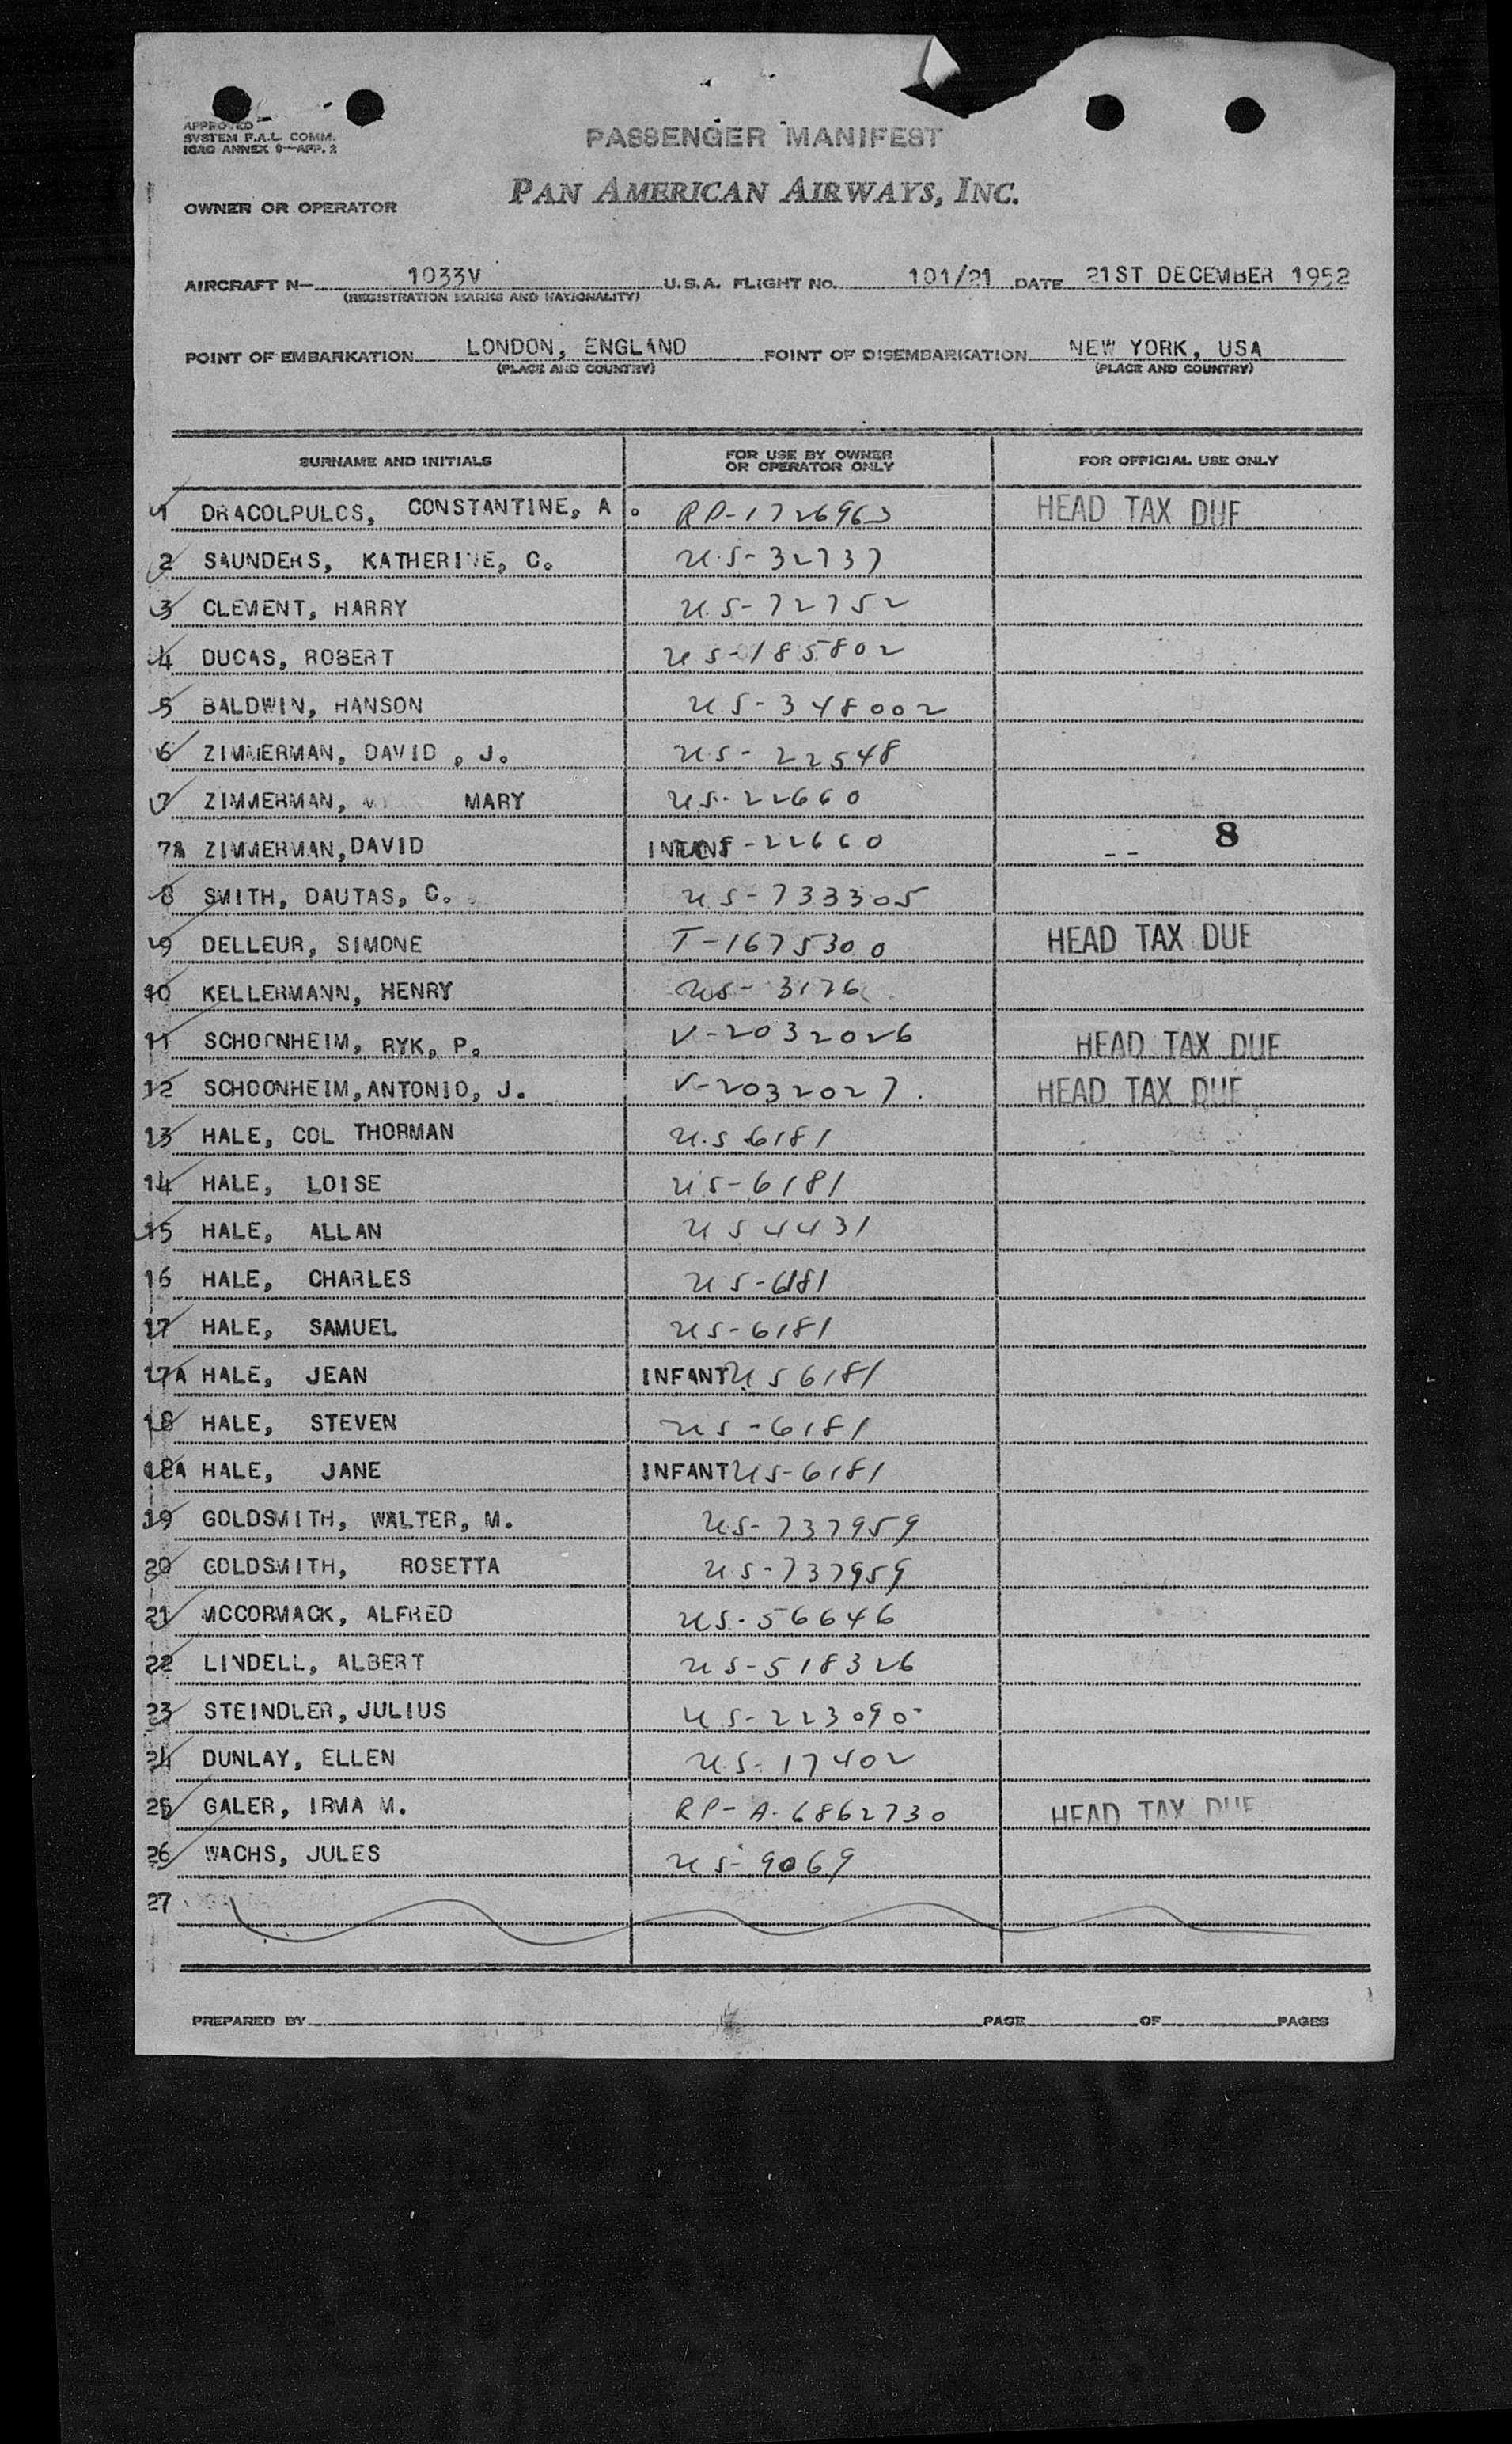 APPROVED
SYSTEM F.A.L. COMM.
ICAO ANNEX 9—APP. 2
PASSENGER MANIFEST
OWNER OR OPERATOR PAN AMERICAN AIRWAYS, INC.
AIRCRAFT N— 1033V U.S.A. FLIGHT NO. 101/21 DATE 21ST DECEMBER 1952
(REGISTRATION MARKS AND NATIONALITY)
POINT OF EMBARKATION LONDON, ENGLAND POINT OF DISEMBARKATION NEW YORK, USA
(PLACE AND COUNTRY) (PLACE AND COUNTRY)
SURNAME AND INITIALS FOR USE BY OWNER OR OPERATOR ONLY FOR OFFICIAL USE ONLY
1 DRACOLPULOS, CONSTANTINE, A. RP-1726963 HEAD TAX DUE
2 SAUNDERS, KATHERINE, C. US-32737
3 CLEMENT, HARRY US-72752
4 DUCAS, ROBERT US-185802
5 BALDWIN, HANSON US-348002
6 ZIMMERMAN, DAVID, J. US-22548
7 ZIMMERMAN, MARY US-22660
7A ZIMMERMAN, DAVID INFANT US-22660 -- 8
8 SMITH, DAUTAS, C. US-733305
9 DELLEUR, SIMONE T-1675300 HEAD TAX DUE
10 KELLERMANN, HENRY US-3176
11 SCHOONHEIM, RYK, P. V-2032026 HEAD TAX DUE
12 SCHOONHEIM, ANTONIO, J. V-2032027. HEAD TAX DUE
13 HALE, COL THORMAN US 6181
14 HALE, LOISE US-6181
15 HALE, ALLAN US 4431
16 HALE, CHARLES US-6181
17 HALE, SAMUEL US-6181
17A HALE, JEAN INFANT US 6181
18 HALE, STEVEN US-6181
18A HALE, JANE INFANT US-6181
19 GOLDSMITH, WALTER, M. US-737959
20 GOLDSMITH, ROSETTA US-737959
21 MCCORMACK, ALFRED US-56646
22 LINDELL, ALBERT US-518326
23 STEINDLER, JULIUS US-223090
24 DUNLAY, ELLEN US-17402
25 GALER, IRMA M. RP-A-6862730 HEAD TAX DUE
26 WACHS, JULES US-9069
27
PREPARED BY PAGE OF PAGES